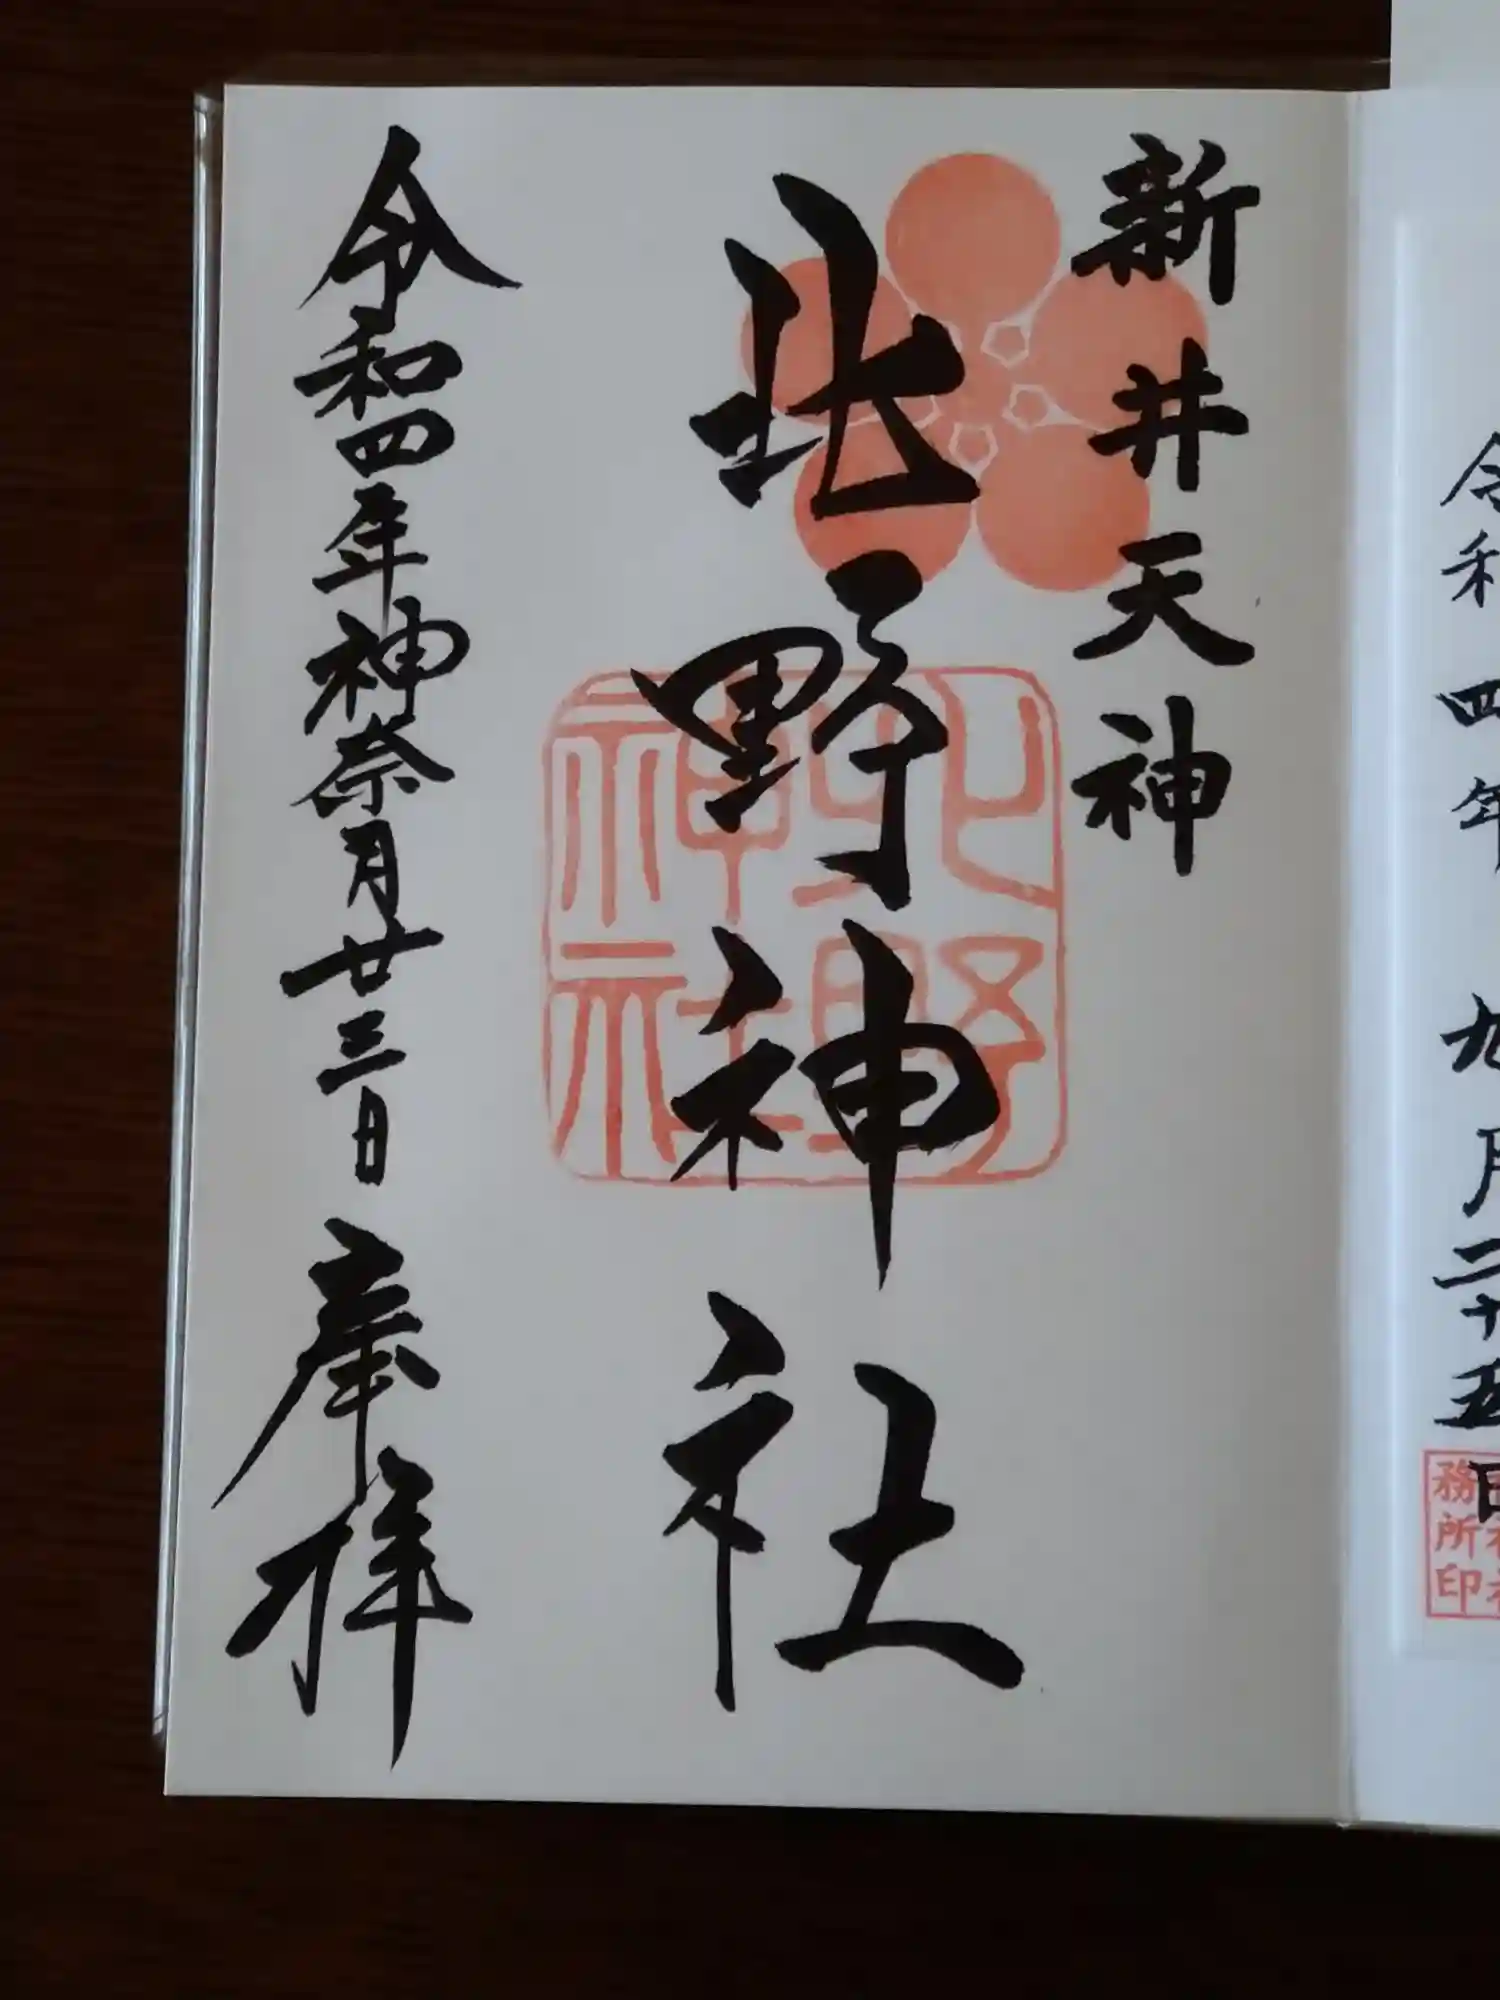 新井天神
北野神社
北野神社
令和四年神奈月廿三日
奉拝
令和四年九月二十五日
務所印